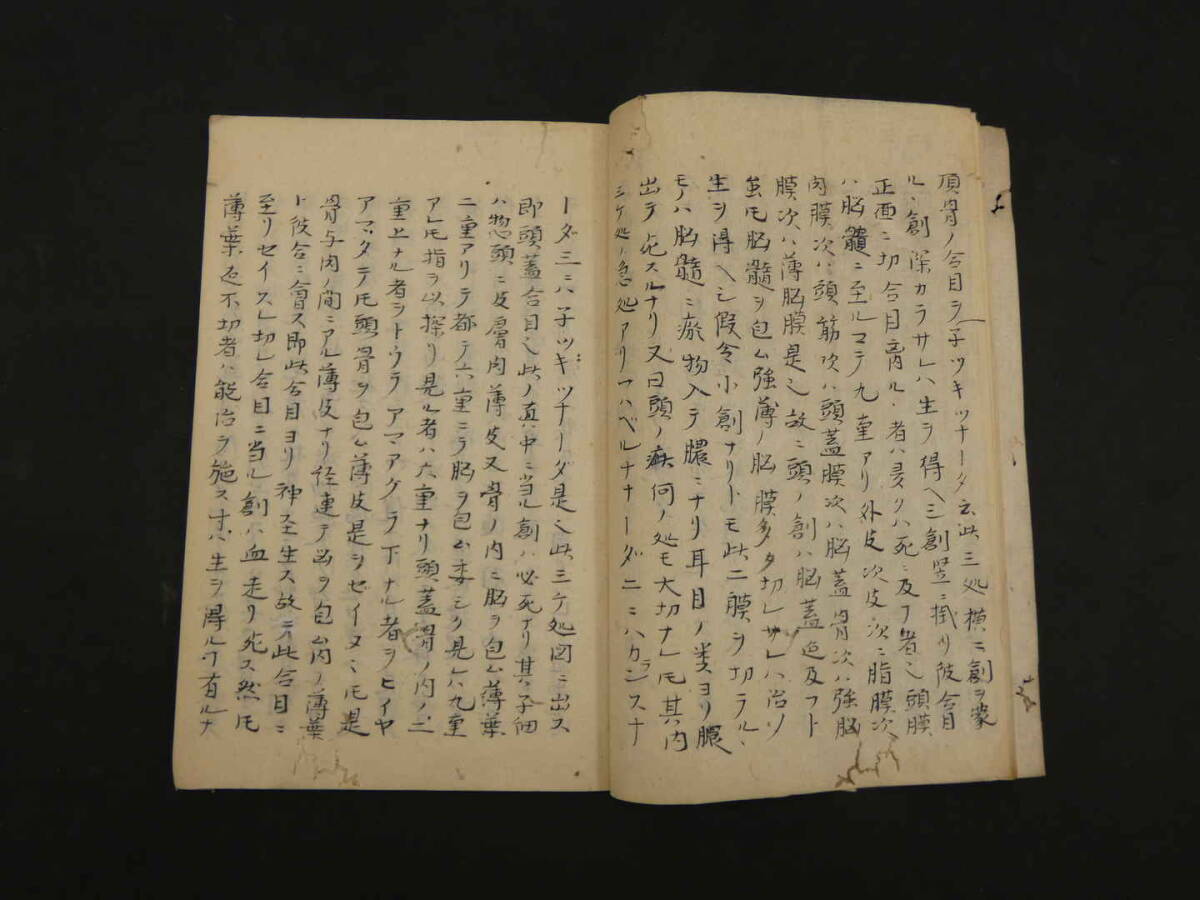 頂骨ノ合目ヲ子ツキツナータ云此三処横ニ創ヲ蒙
ル創深カラサレハ生ヲ得ヘシ創竪ニ掛リ彼合目
正面ニ切合目ル者ハ多クハ死ニ及フ者也頭膜
ハ脳髄ニ至ルマテ九重アリ外皮次皮次ニ脂膜次
肉膜次ハ頭筋次ハ頭蓋膜次ハ脳蓋骨次ハ強脳
膜次ハ薄脳膜是也故ニ頭ノ創ハ脳蓋迄及フト
モ脳髄ヲ包ム強薄ノ脳膜多タ切レサレハ治ソ
生ヲ得ヘシ假令小創ナリトモ此二膜ヲ切ラル
モノハ脳髄ニ瘀物入テ膿ニナリ耳目ノ类ヨリ膿
出テ死スルナリ又曰頭ノ何ノ処モ大切ナレ𪜈其内
三ケ処ノ急処アリ一ハベルナナーダニニハクランスナ
ーダ三ハ子ツギツナーダ是也此三ケ処図ニ出ス
即頭蓋合目也此ノ真中ニ当ル創ハ必死ナリ其子細
ハ惣頭ニ皮膚肉薄皮又骨ノ内ニ脳ヲ包ム薄葉
ニ重アリテ都テ六重ニラ脳ヲ包ム委シク見レハ九重
アレ𪜈指ヲ以探リ見ル者ハ六重ナリ頭蓋骨ノ内ノ二
重上ナル者ヲトウラアマアグラ下ナル者ヲヒイヤ
アマタテ𪜈頭骨ヲ包ム薄皮是ヲセイヌミ𪜈是
骨与肉ノ間ニアル薄皮ナリ径連テ歯ヲ包ム内ノ薄葉
ト彼合ニ會ス即此合目ヨリ神圣生ス故ニ此合目ニ
至リセイスム切レ合目ニ当ル創ハ血走リ死ス然𪜈
薄葉迄不切者ハ能治ヲ施スハ生ヲ得ルヿ有ルナ